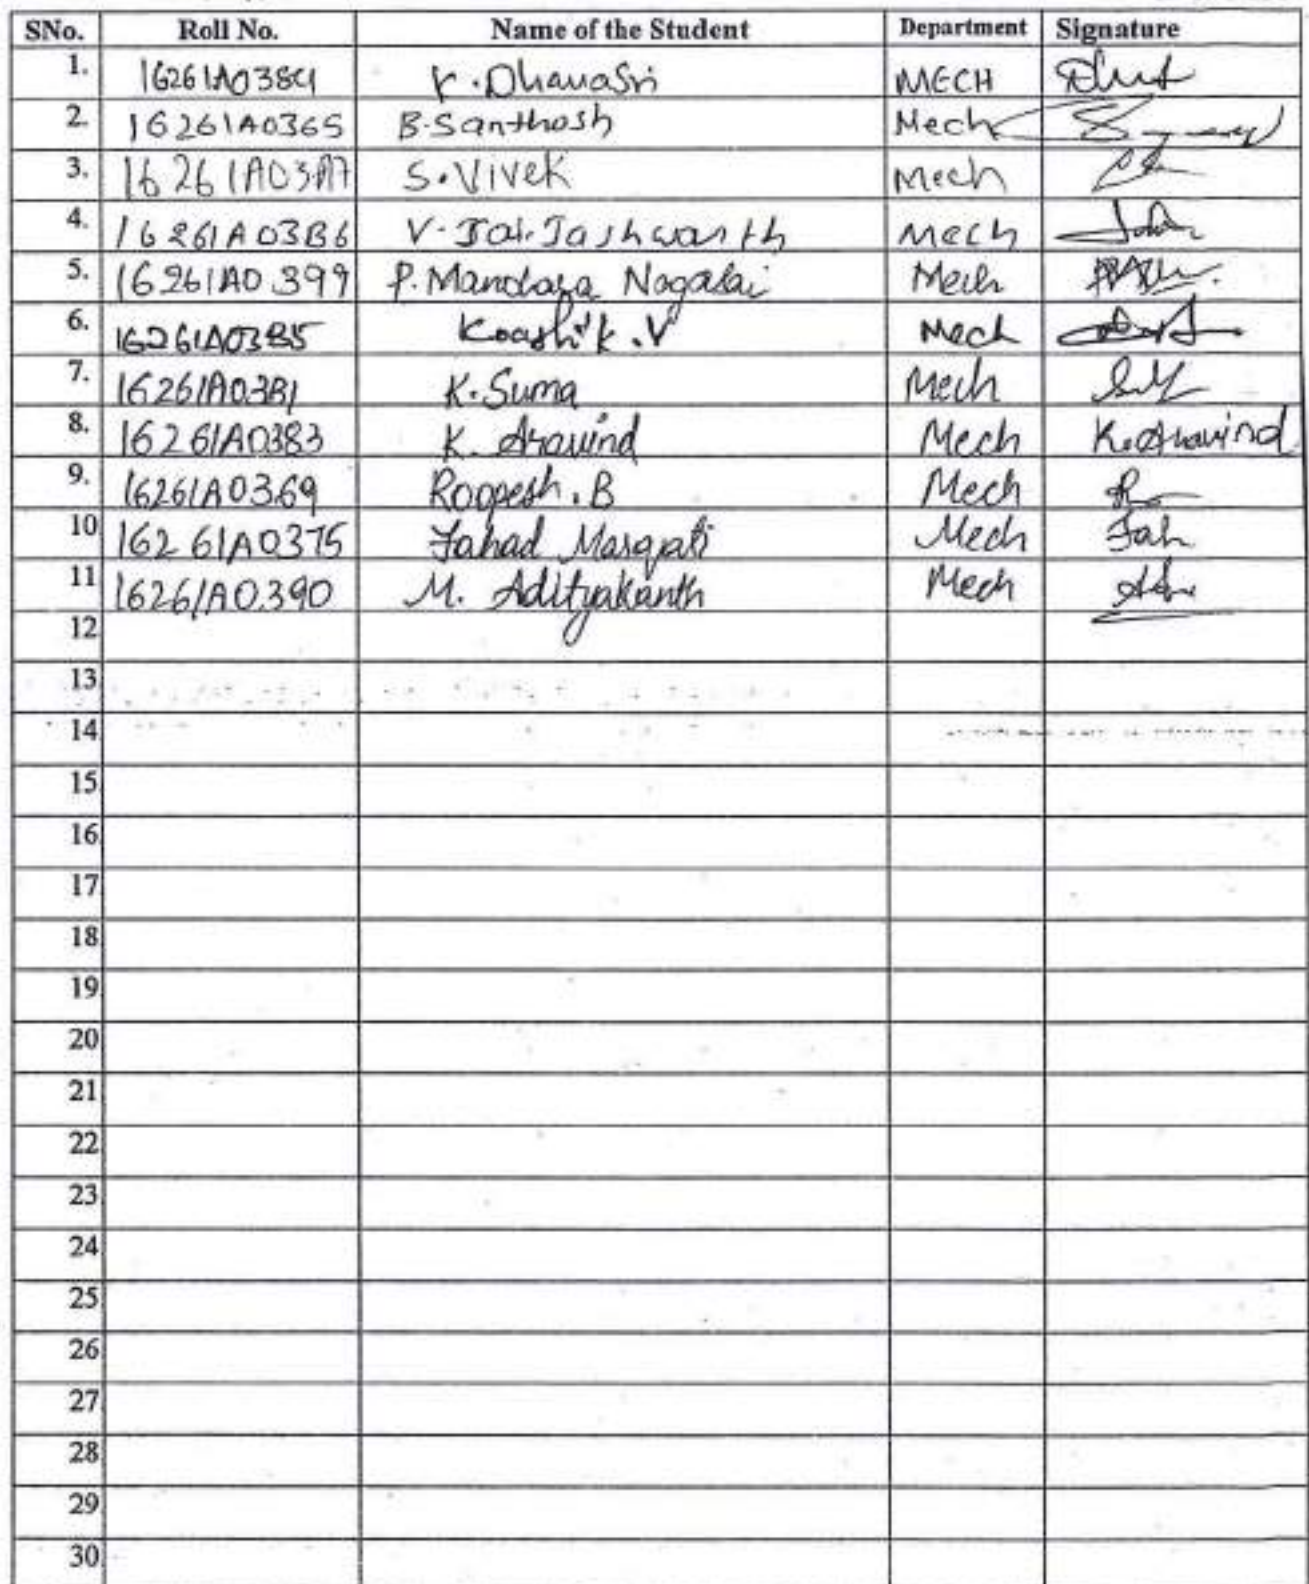 SNo. Roll No. Name of the Student Department Signature
1. 16261A0384 K. Dhanasri MECH
2. 16261A0365 B. Santhosh Mech
3. 16261A03A7 S. Vivek Mech
4. 16261A03B6 V. Jai Jashwanth Mech
5. 16261A0399 P. Mandara Nagasai Mech
6. 16261A03B5 Koashik .V Mech
7. 16261A0381 K. Suma Mech
8. 16261A0383 K. Aravind Mech K. Aravind
9. 16261A0369 Roopesh . B Mech
10 16261A0375 Fahad Marqati Mech Fah
11 16261A0390 M. Adityakanth Mech
12
13
14
15
16
17
18
19
20
21
22
23
24
25
26
27
28
29
30